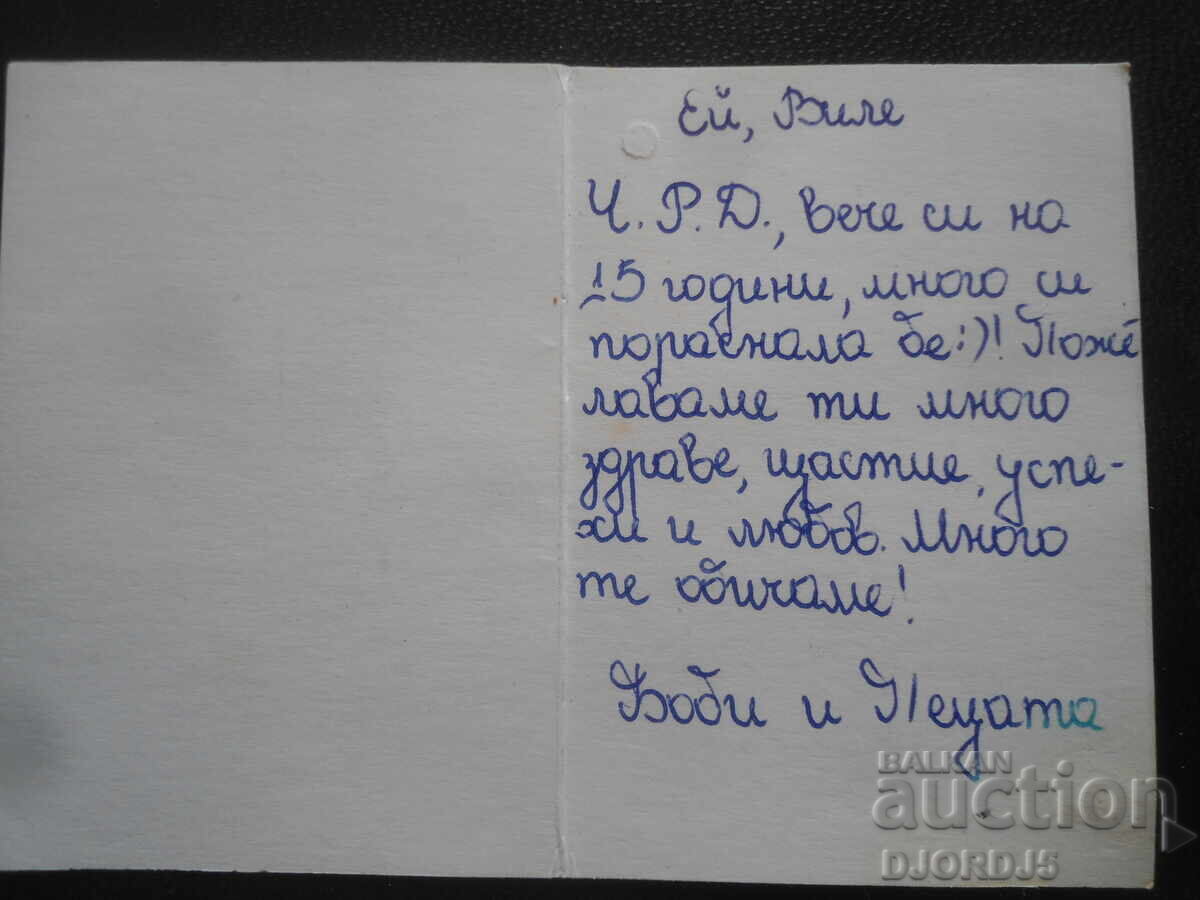 Ей, Виле
Ч. Р. Д., вече си на
15 години, много си
пораснала бе:)! Поже
лаваме ти много
здраве, щастие, успе-
хи и любов. Много
те обичаме!
Боби и Пецата
BALKAN
auction
DJORDJ5